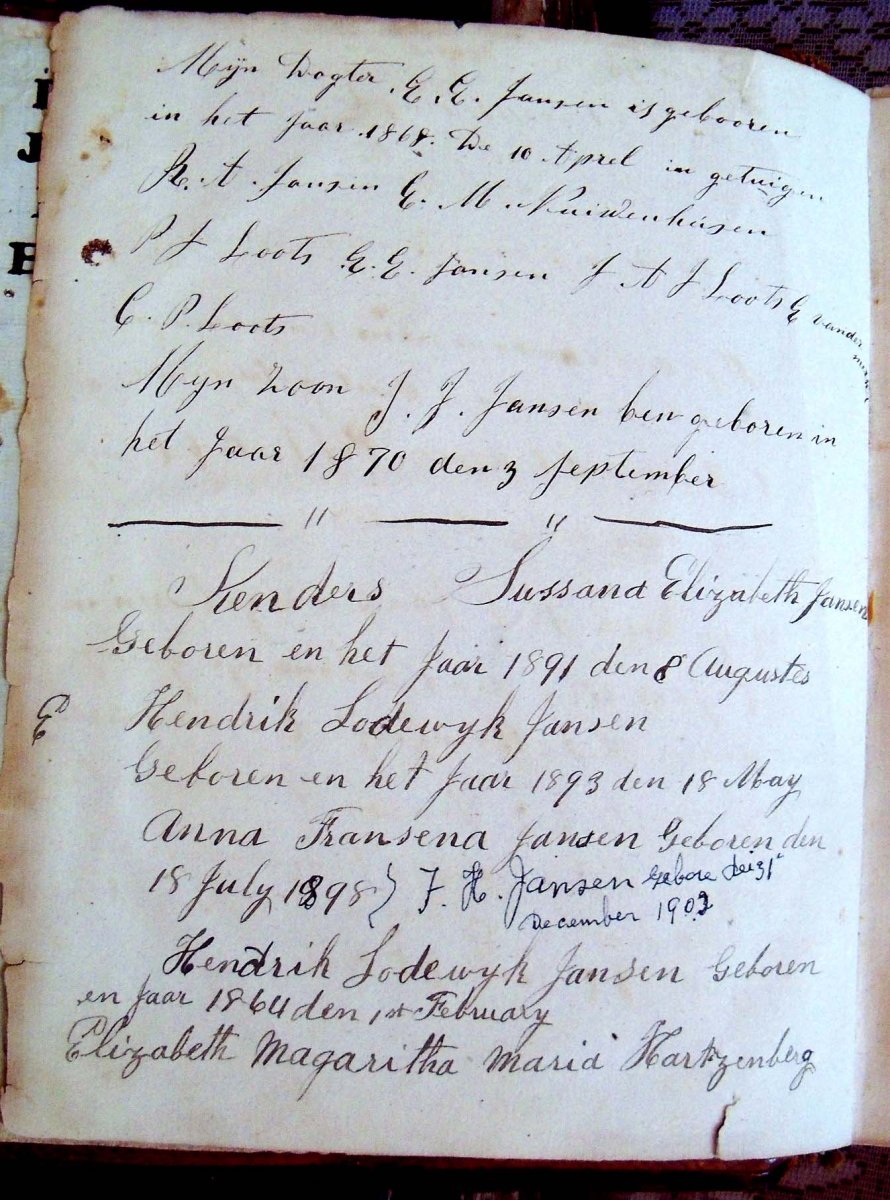 Mijn Dogter E. E. Jansen is gebooren
in het Jaar 1868. De 10 Aprel in getuigen
R. A. Jansen E. M. Nuiwenhusen
P J Loots E. E. Jansen J A J Loots E vander
merwe
C. P. Loots
Myn Zoon J. J. Jansen ben geboren in
het Jaar 1870 den 3 September
" "
Kenders Sussana Elizabeth Jansen
Geboren en het Jaar 1891 den 8 Augustes
E
Hendrik Lodewyk Jansen
Geboren en het Jaar 1893 den 18 May
Anna Fransena Jansen Geboren den
18 July 1898 } F. H. Jansen Gebore dei 31
December 1902
Hendrik Lodewyk Jansen Geboren
en Jaar 1864 den 1st February
Elizabeth Magaritha Maria Hartzenberg